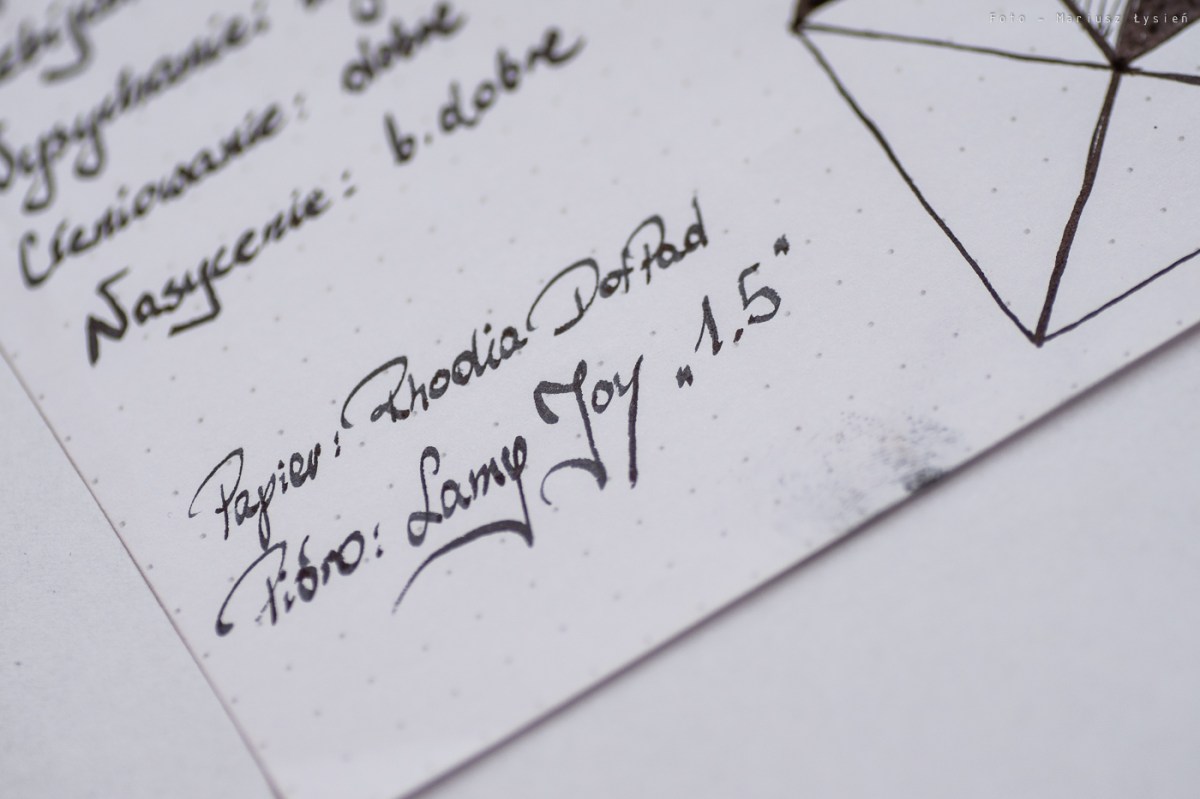 Foto - Mariusz Łysień
Wysychanie:
Cieniowanie: dobre
Nasycenie: b. dobre
Papier: Rhodia DotPad
Pióro: Lamy Joy „1.5"